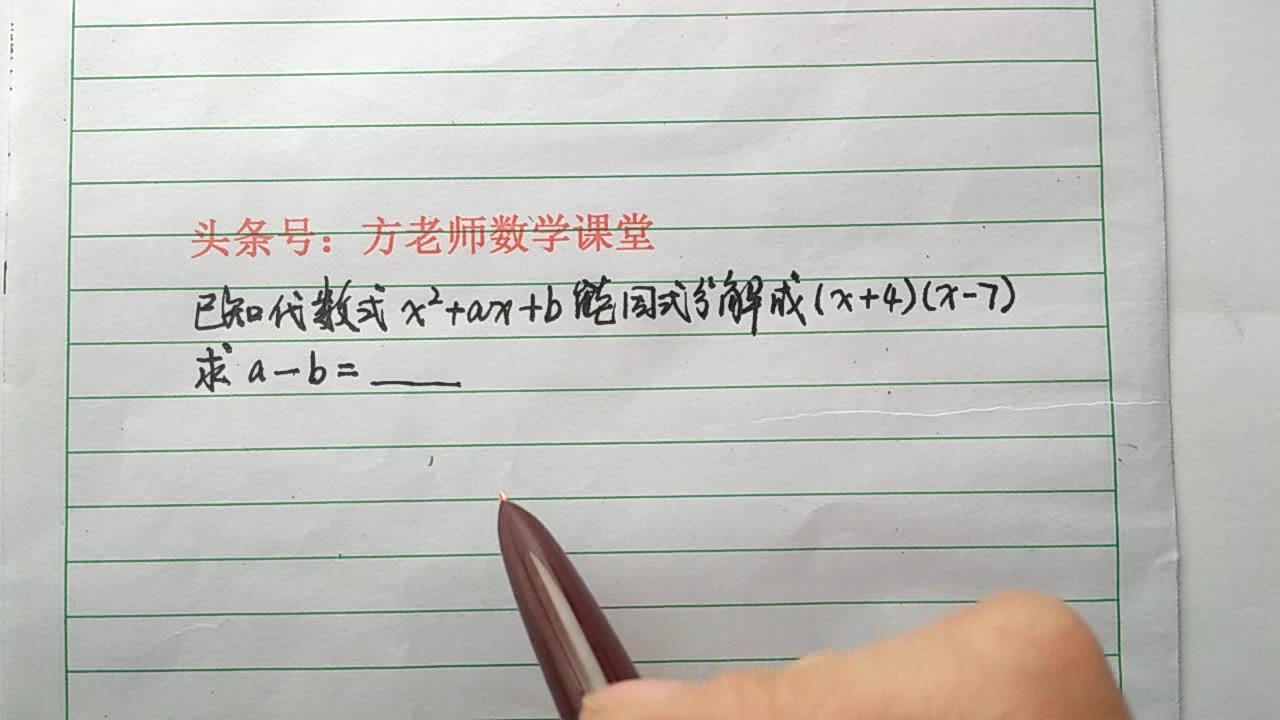 头条号：方老师数学课堂
已知代数式 x²+ax+b 能因式分解成 (x+4)(x-7)
求 a-b=____